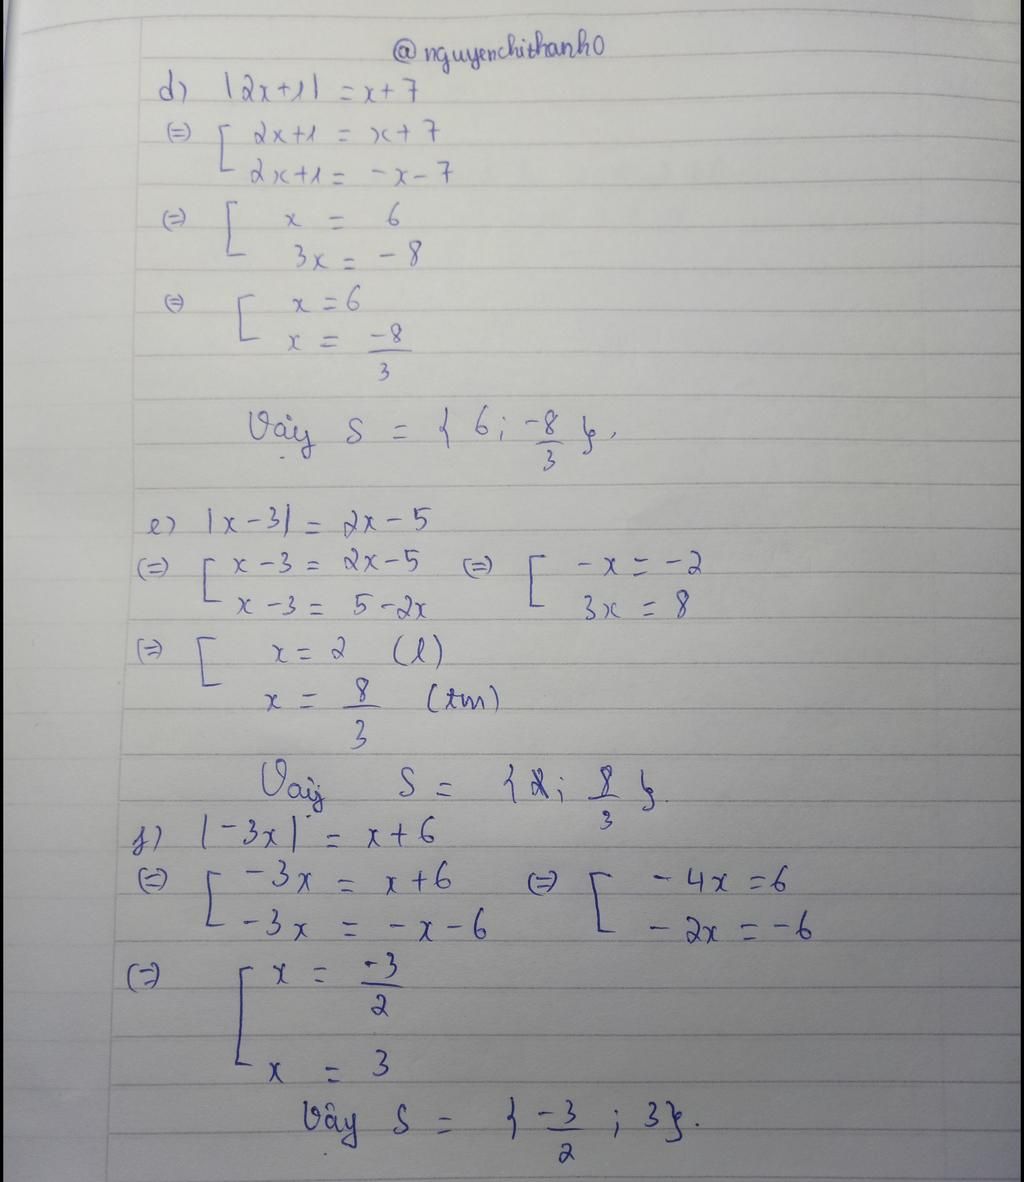 @nguyenchithanh0
d) |2x+1| = x+7
(=) [ 2x+1 = x+7
2x+1 = -x-7
(=) [ x = 6
3x = -8
(=) [ x = 6
x = -8/3
Vậy S = { 6; -8/3 }.
e) |x-3| = 2x-5
(=) [ x-3 = 2x-5 (=) [ -x = -2
x-3 = 5-2x 3x = 8
(=) [ x = 2 (l)
x = 8/3 (tm)
Vậy S = { ; 8/3 }.
f) |-3x| = x+6
(=) [ -3x = x+6 (=) [ -4x = 6
-3x = -x-6 -2x = -6
(=) [ x = -3/2
x = 3
Vậy S = { -3/2 ; 3}.